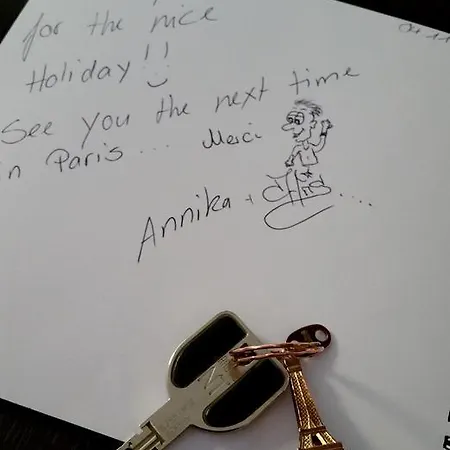 for the nice
Holiday!!
See you the next time
in Paris... Merci
Annika +